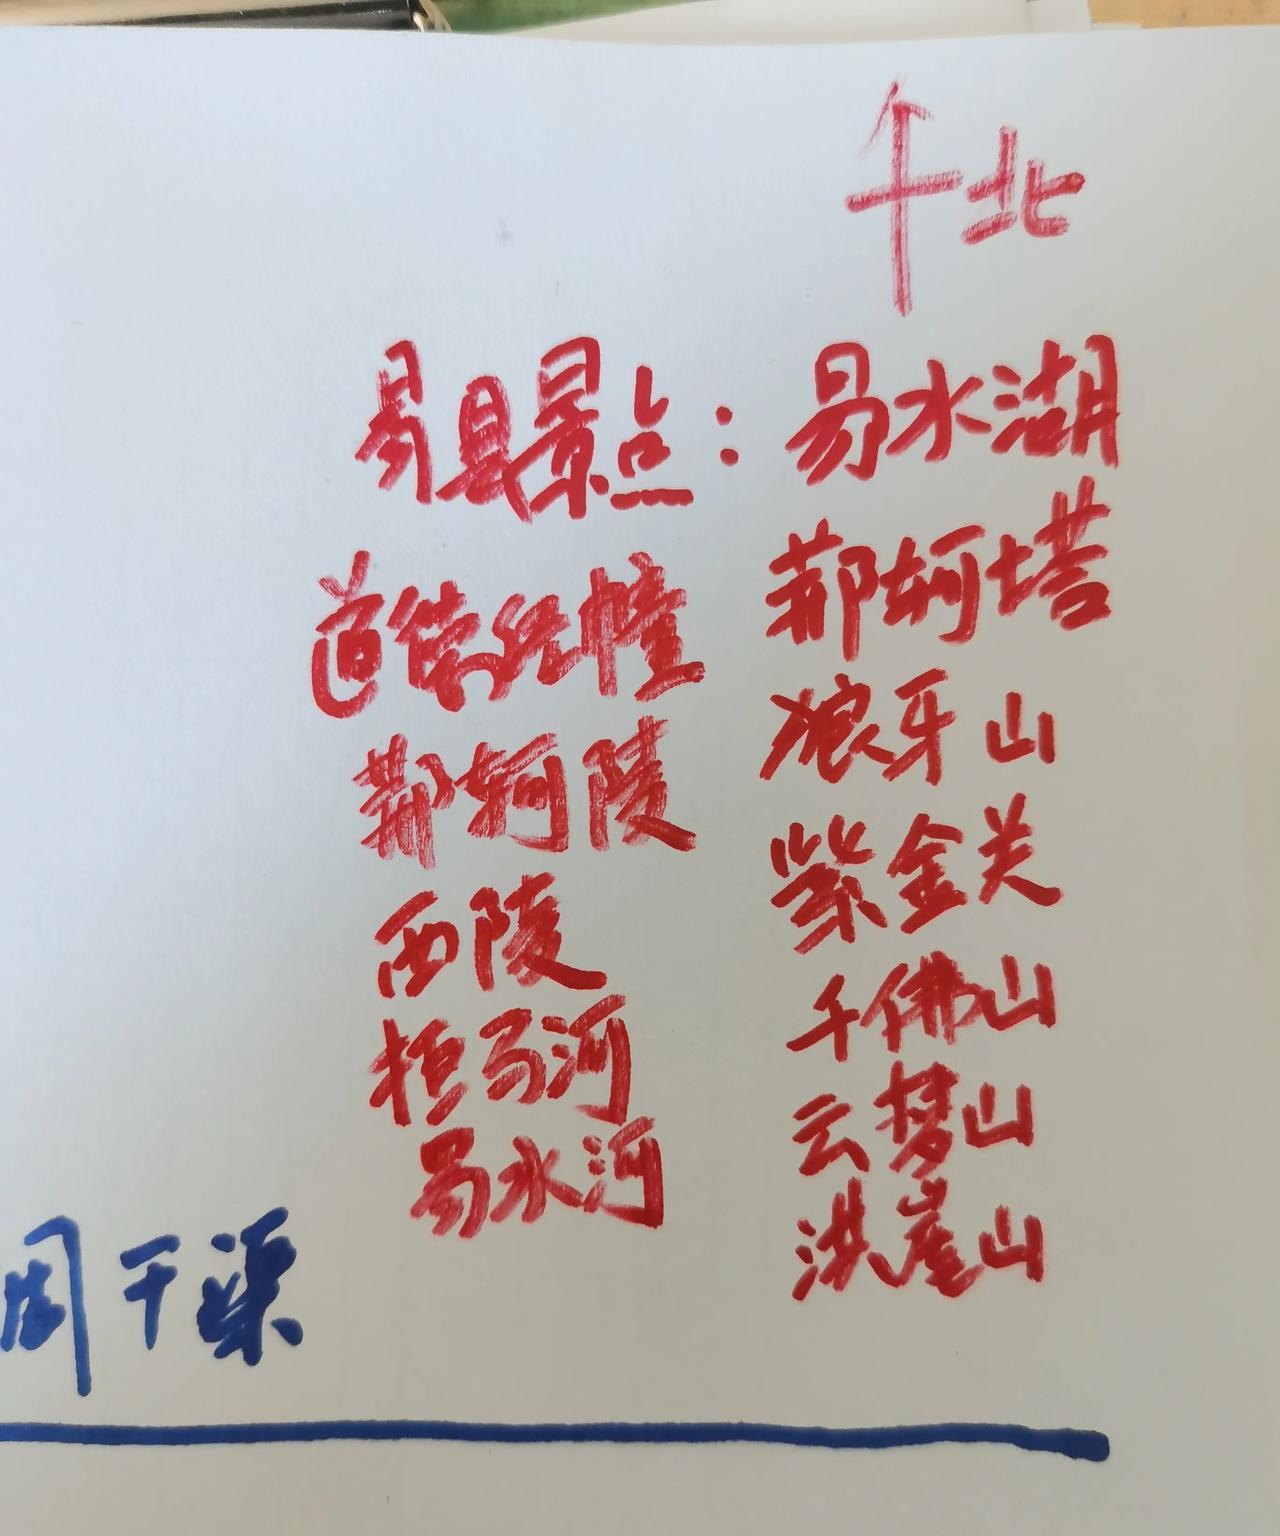 北
易县景点：易水湖
荆轲塔
道德经幢
狼牙山
荆轲陵
紫金关
西陵
千佛山
拒马河
云梦山
易水河
洪崖山
周干渠